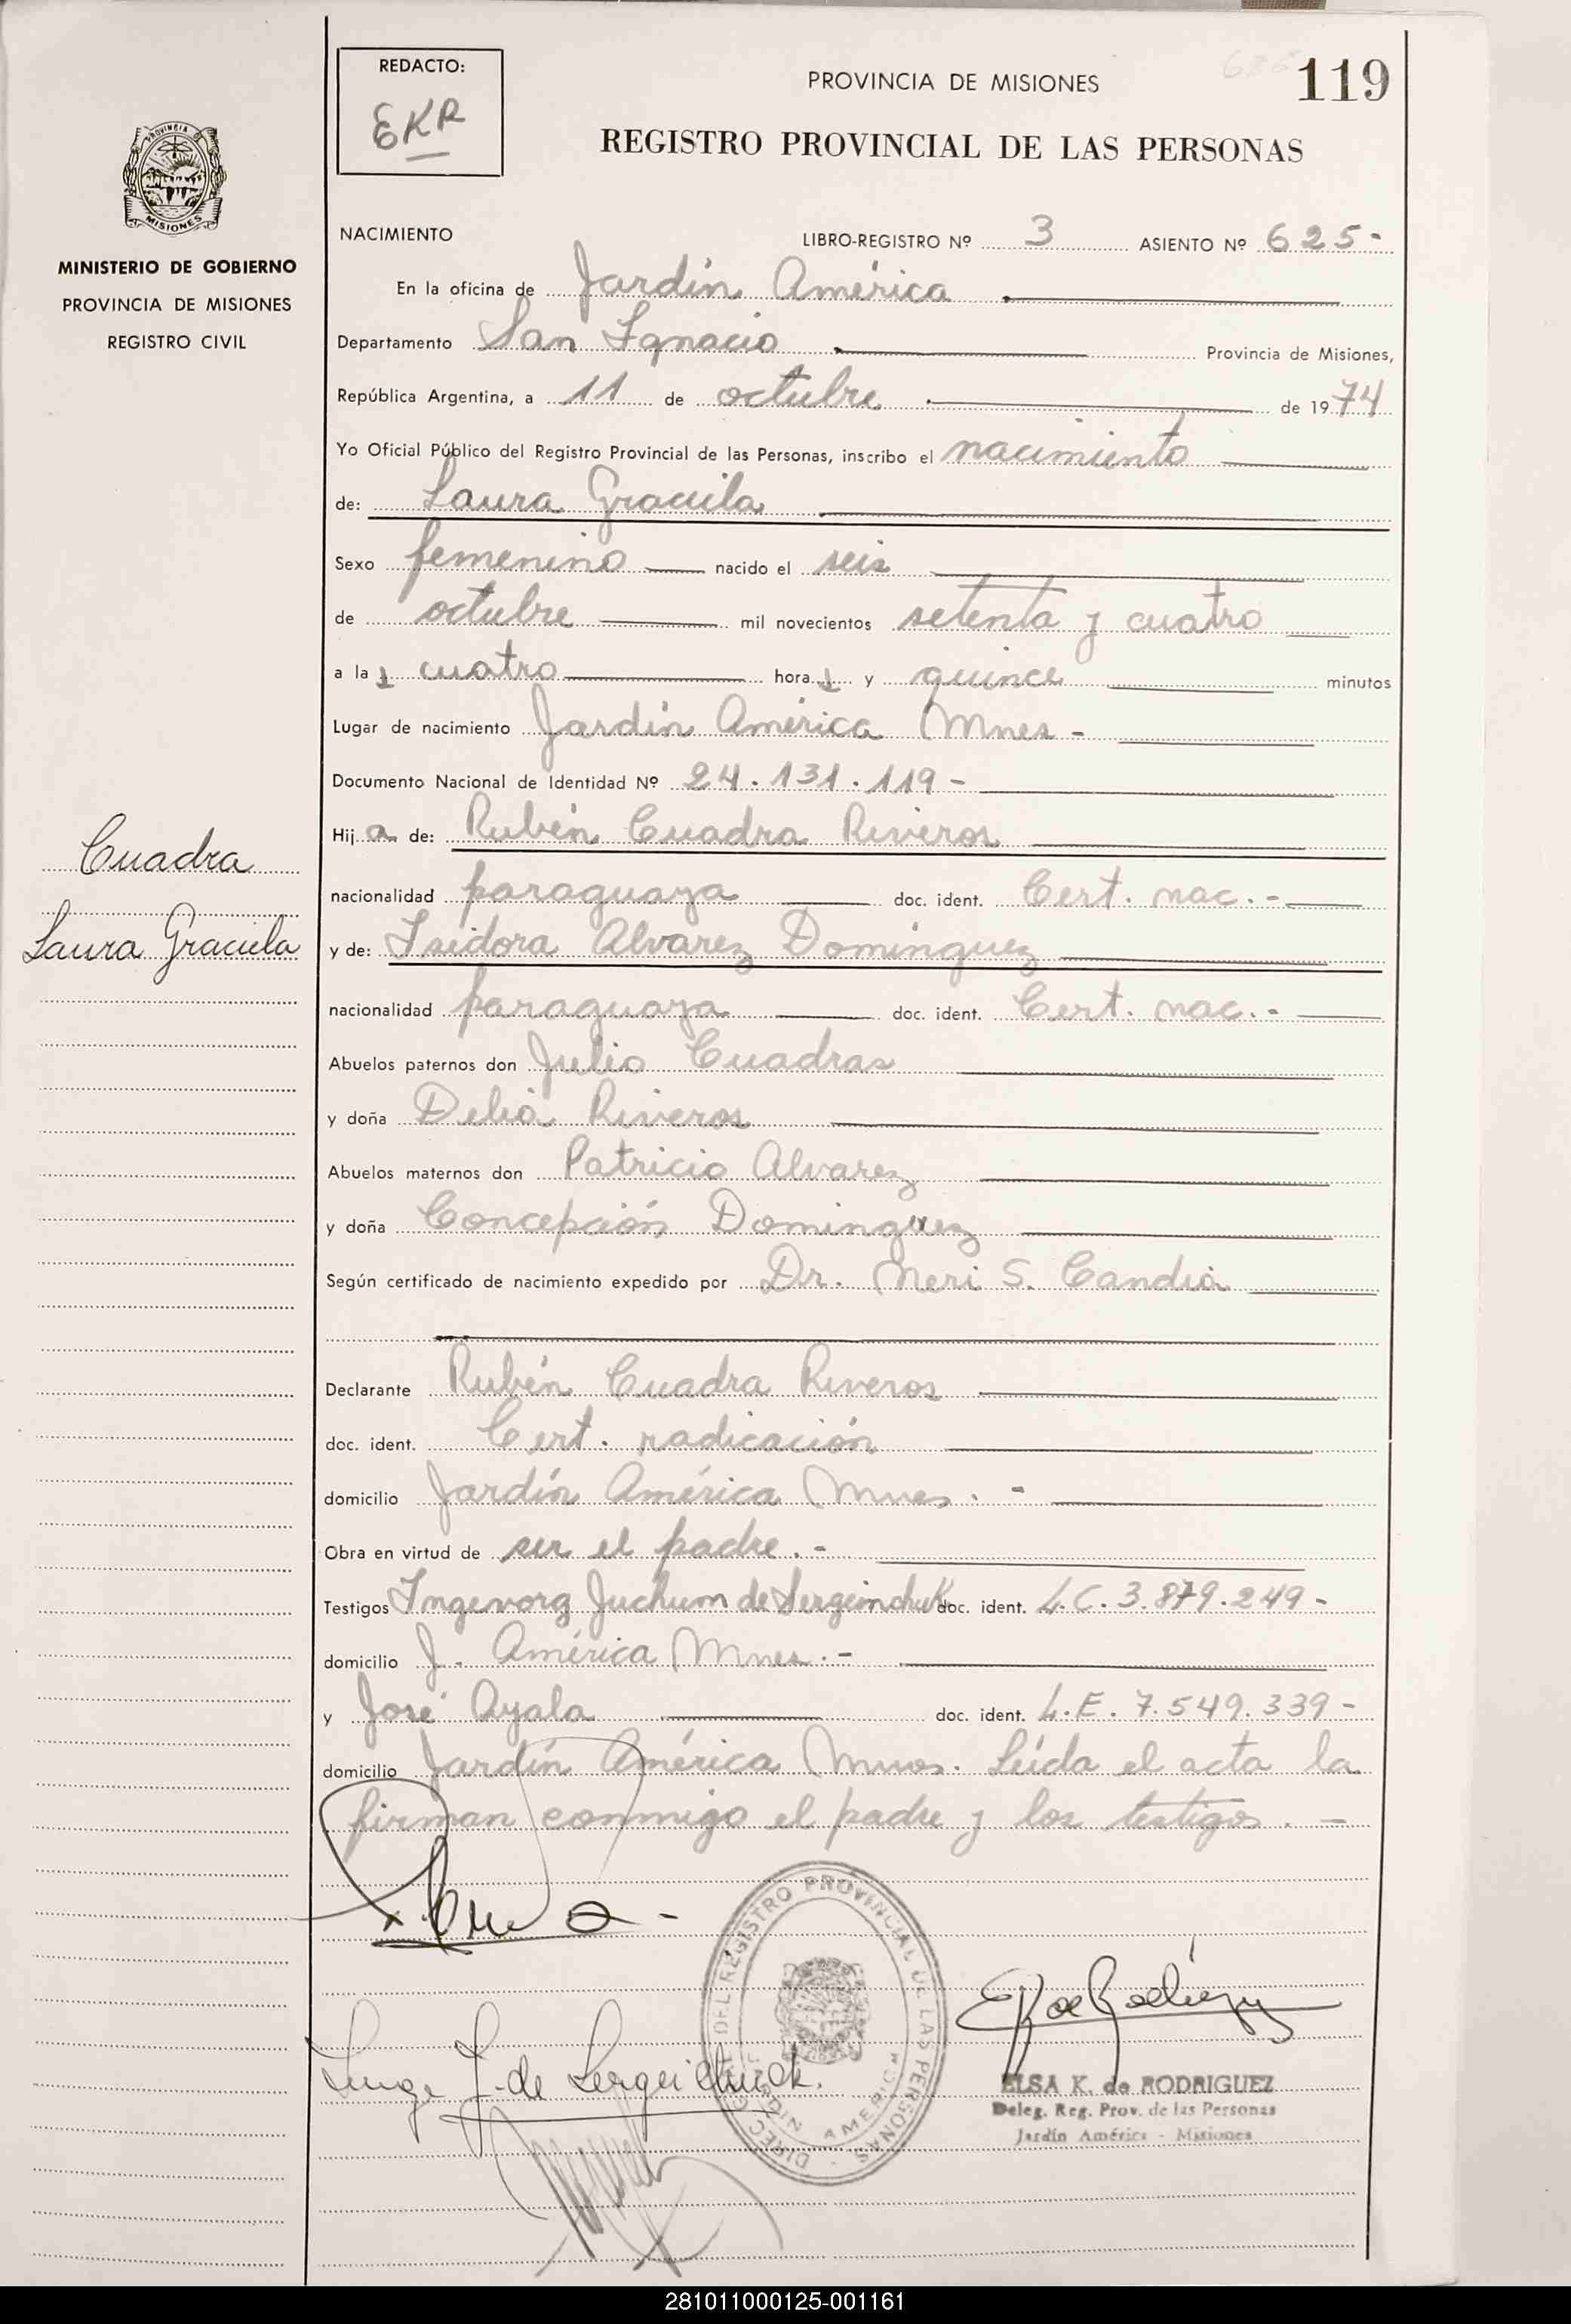 REDACTO:
EKR
PROVINCIA DE MISIONES
119
REGISTRO PROVINCIAL DE LAS PERSONAS
PROVINCIA DE
MISIONES
MINISTERIO DE GOBIERNO
PROVINCIA DE MISIONES
REGISTRO CIVIL
NACIMIENTO LIBRO-REGISTRO Nº 3 ASIENTO Nº 625-
En la oficina de Jardín América
Departamento San Ignacio Provincia de Misiones,
República Argentina, a 11 de octubre de 1974
Yo Oficial Público del Registro Provincial de las Personas, inscribo el nacimiento
de: Laura Graciela
Sexo femenino nacido el seis
de octubre mil novecientos setenta y cuatro
a las cuatro horas y quince minutos
Lugar de nacimiento Jardín América Mnes -
Documento Nacional de Identidad Nº 24.131.119-
Hija de: Rubén Cuadra Riveros
Cuadra
nacionalidad paraguaya doc. ident. Cert. nac. -
Laura Graciela
y de: Isidora Alvarez Domínguez
nacionalidad paraguaya doc. ident. Cert. nac. -
Abuelos paternos don Julio Cuadras
y doña Delia Riveros
Abuelos maternos don Patricio Alvarez
y doña Concepción Dominguez
Según certificado de nacimiento expedido por Dr. Neri S. Candia
Declarante Rubén Cuadra Riveros
doc. ident. Cert. radicación
domicilio Jardín América Mnes. -
Obra en virtud de ser el padre. -
Testigos Ingevorg Juchum de Sergeinchuk doc. ident. L.C. 3.879.249-
domicilio J. América Mnes. -
y José Ayala doc. ident. L.E. 7.549.339-
domicilio Jardín América Mnes. Leída el acta la
firman conmigo el padre y los testigos. -
DEL REGISTRO PROVINCIAL DE LAS PERSONAS
JARDIN AMERICA
Inge J. de Sergeichuk.
ELSA K. de RODRIGUEZ
Deleg. Reg. Prov. de las Personas
Jardín América - Misiones
281011000125-001161